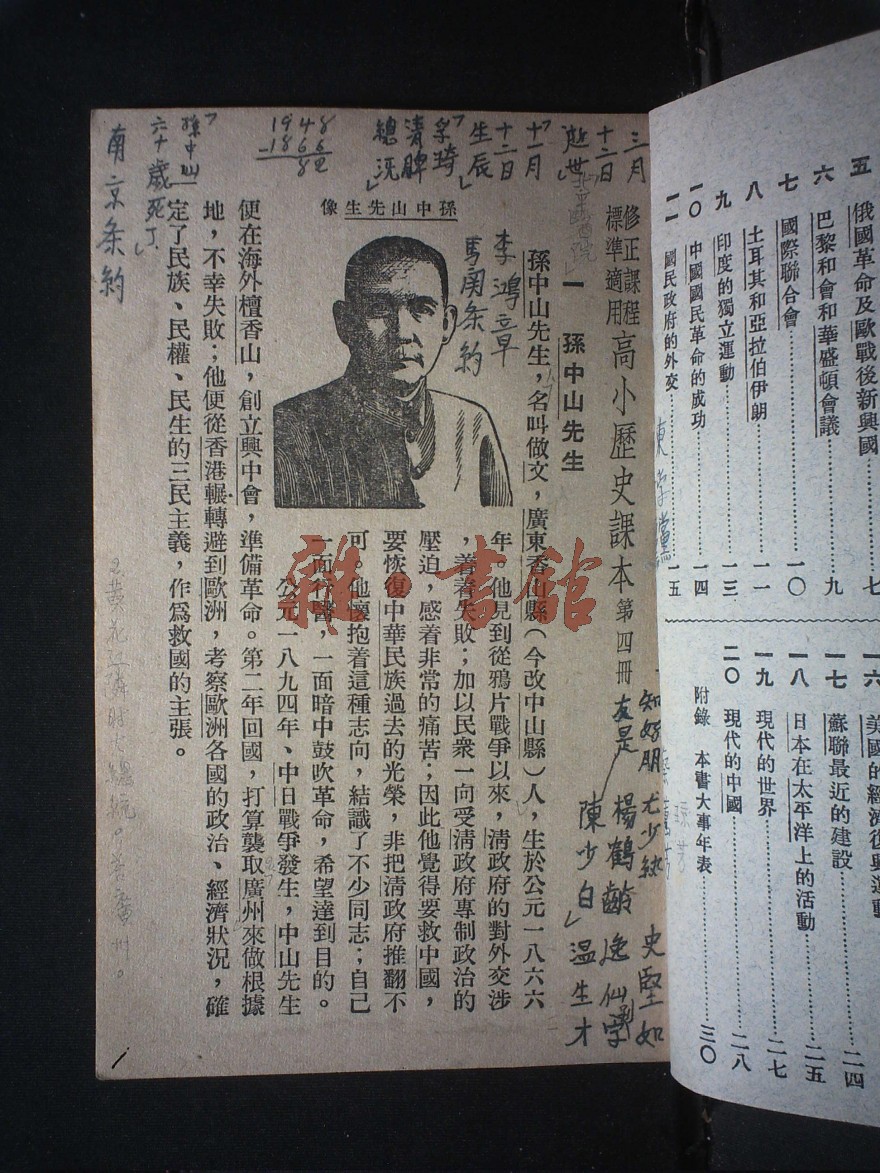 五 俄國革命及歐戰後新興國……七
六 巴黎和會和華盛頓會議……九
七 國際聯合會……一〇
八 土耳其和亞拉伯伊朗……一一
九 印度的獨立運動……一三
一〇 中國國民革命的成功……一四
一一 國民政府的外交……一五
一六 美國的經濟復興運動……二四
一七 蘇聯最近的建設……二五
一八 日本在太平洋上的活動……二七
一九 現代的世界……二八
二〇 現代的中國……三〇
附錄 本書大事年表
修正課程標準適用 高小歷史課本 第四冊
一 孫中山先生
孫中山先生,名叫做文,廣東香山縣(今改中山縣)人,生於公元一八六六
年。他見到從鴉片戰爭以來,淸政府的對外交涉
,着着失敗;加以民衆一向受淸政府專制政治的
壓迫,感着非常的痛苦;因此他覺得要救中國,
要恢復中華民族過去的光榮,非把淸政府推翻不
可。他懷抱着這種志向,結識了不少同志;自己
一面行醫,一面暗中鼓吹革命,希望達到目的。
公元一八九四年、中日戰爭發生,中山先生
孫中山先生像
便在海外檀香山,創立興中會,準備革命。第二年回國,打算襲取廣州來做根據
地,不幸失敗;他便從香港輾轉避到歐洲,考察歐洲各國的政治、經濟狀况,確
定了民族、民權、民生的三民主義,作爲救國的主張。
三月
十二日
逝世
十一月
十二日
生辰
總統
1948
-1866
82
孫中山
六十歲死了
南京条約
李鴻章
馬関条約
知好朋友是
尤少紈
楊鶴齡
陳少白
史堅如
逸仙
温生才
雜·書館